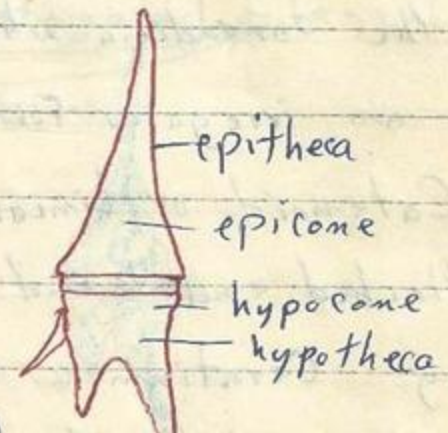 epitheca
epicone
hypocone
hypotheca